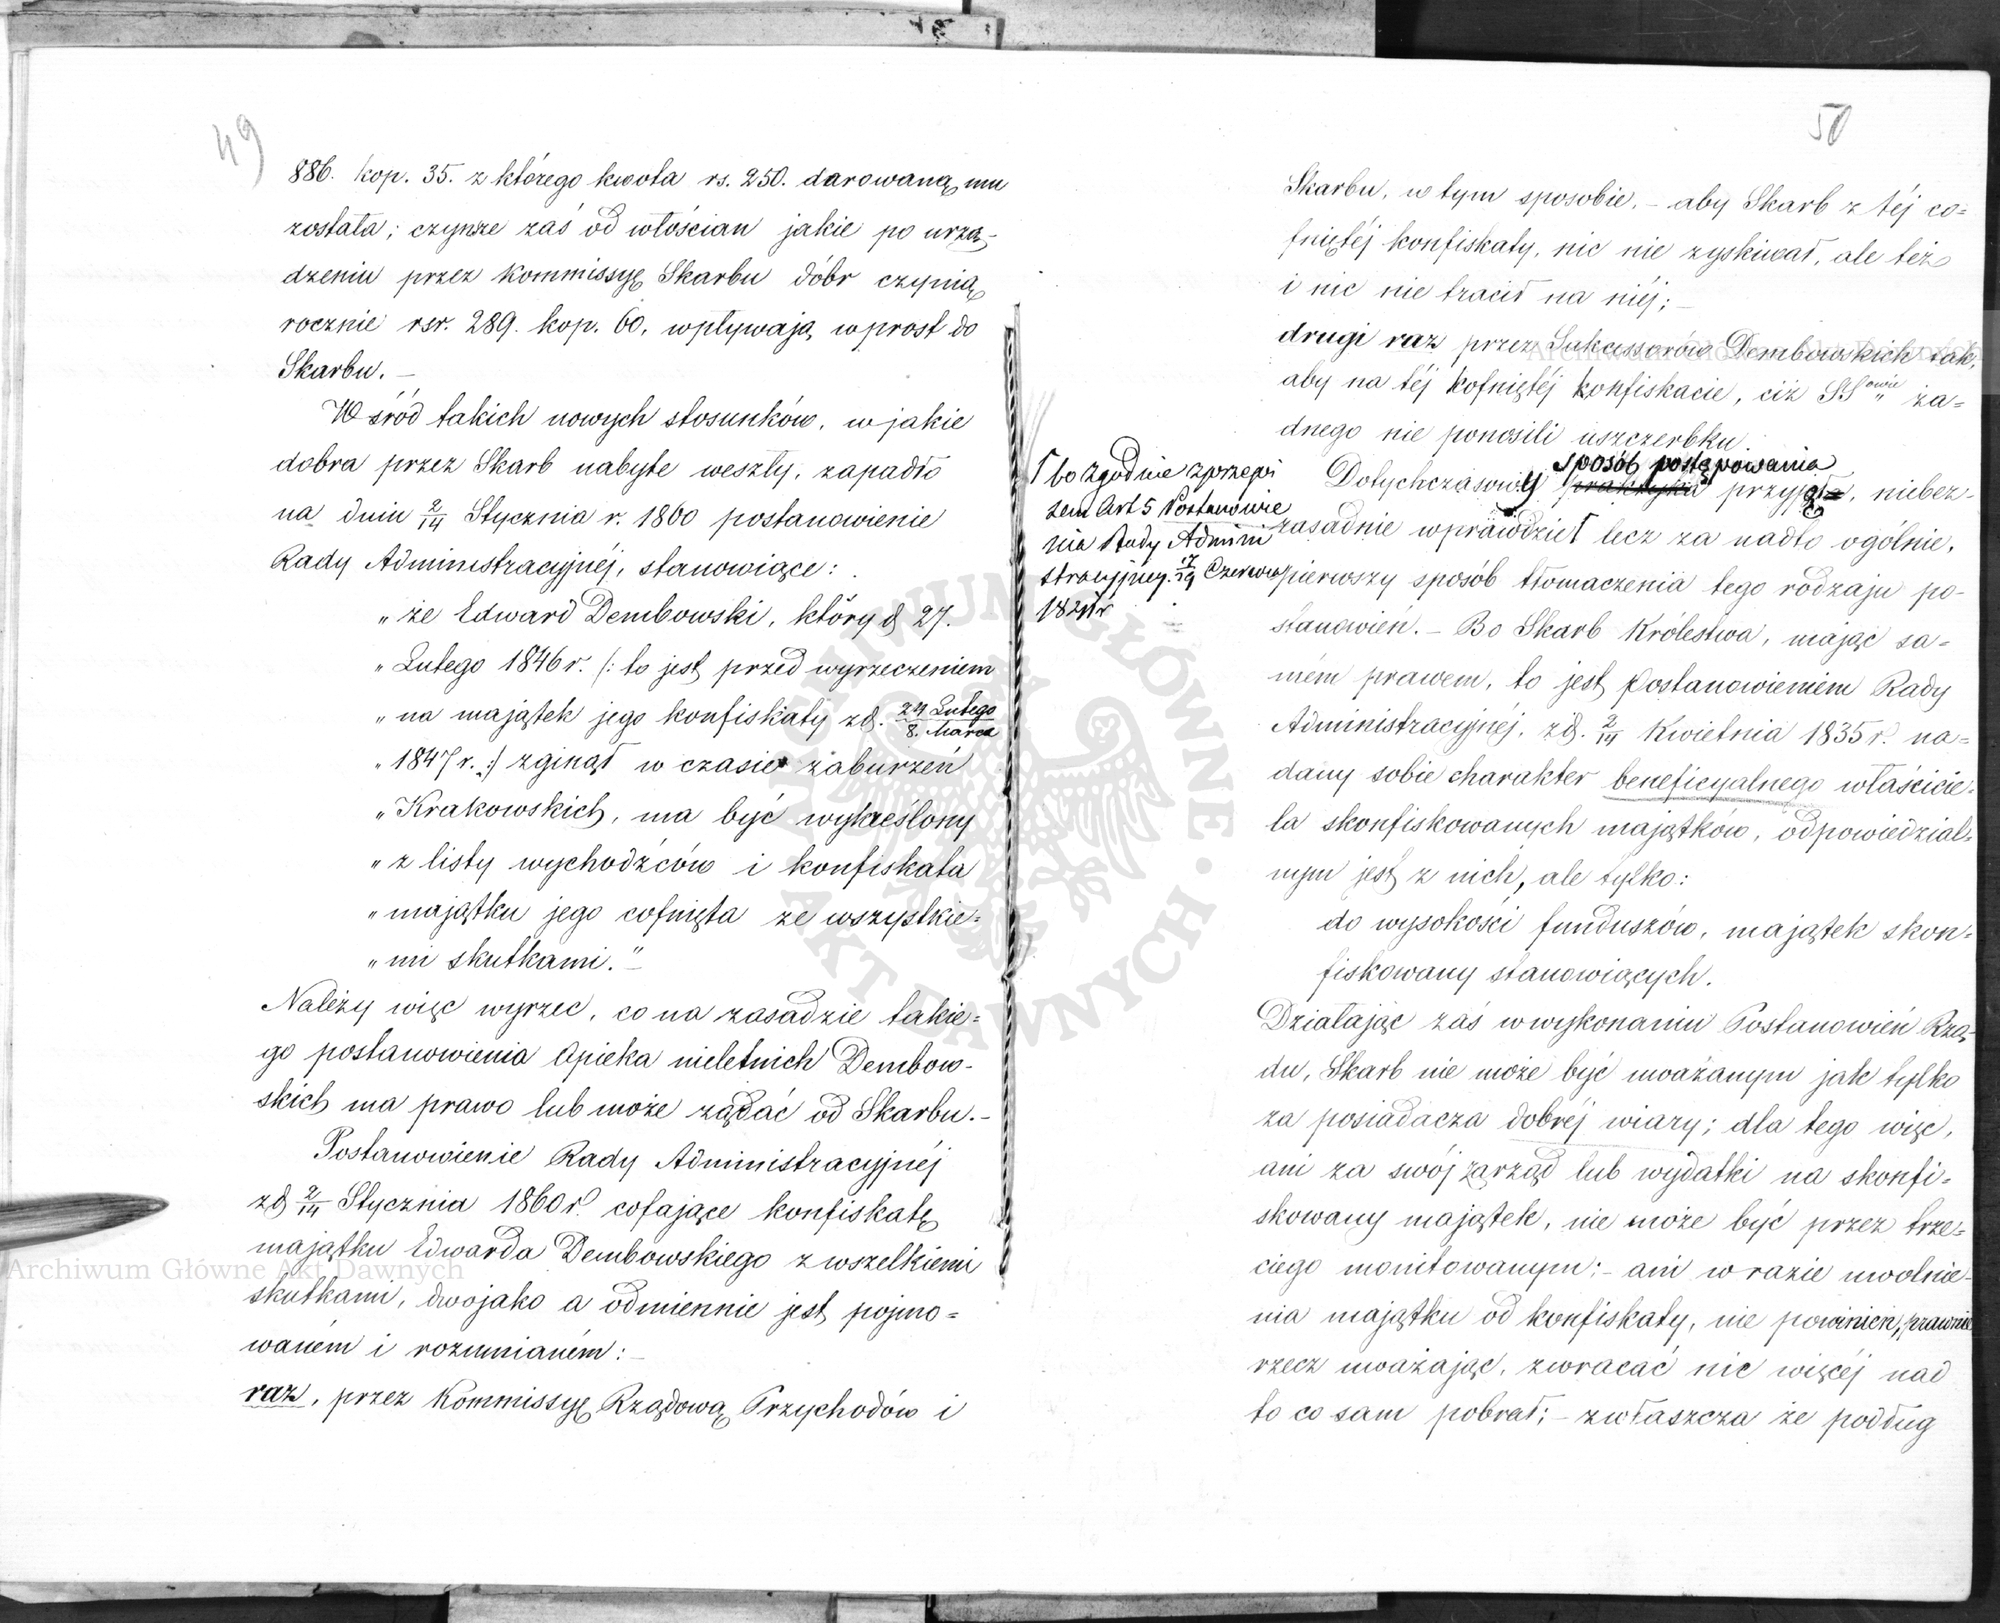 49
886. kop. 35. z którego kwota rs. 250. darowaną mu
została; czynsze zaś od włościan jakie po urzą-
dzeniu przez Kommissyę Skarbu dóbr czynią
rocznie rsr. 289. kop. 60, wpływają wprost do
Skarbu. –
Wśród takich nowych stosunków, w jakie
dobra przez Skarb nabyte weszły, zapadło
na dniu 2/14 Stycznia r. 1860 postanowienie
Rady Administracyjnéj, stanowiące:
„ że Edward Dembowski, który d. 27.
„ Lutego 1846 r. /: to jest przed wyrzeczeniem
„ na majątek jego konfiskaty z d. 24 Lutego/8. Marca
„ 1847 r. :/ zginął w czasie zaburzeń
„ Krakowskich, ma być wykreślony
„ z listy wychodźców i konfiskata
„ majątku jego cofnięta ze wszystkie=
„ mi skutkami." –
Należy więc wyrzec, co na zasadzie takie=
go postanowienia Opieka nieletnich Dembow-
skich ma prawo lub może żądać od Skarbu. –
Postanowienie Rady Administracyjnéj
z d. 2/14 Stycznia 1860 r. cofające konfiskatę
majątku Edwarda Dembowskiego z wszelkiemi
skutkami, dwojako a odmiennie jest pojmo=
waném i rozumianém: –
raz, przez Kommissyę Rządową Przychodów i
50
Skarbu, w tym sposobie, – aby Skarb z téj co=
fniętéj konfiskaty, nic nie zyskiwał, ale też
i nic nie tracił na niéj; –
drugi raz przez Sukcessorów Dembowskich tak,
aby na téj kofniętéj konfiskacie, ciż SSowie ża=
dnego nie ponosili uszczerbku.
sposób postępowania
Dotychczasowy praktyka przyjęta, niebez-
zasadnie wprawdzie ⌈ lecz za nadto ogólnie,
⌈ bo zgodnie z przepi
sem Art 5 Postanowie
nia Rady Admini
stracyjney
pierwszy sposób tłomaczenia tego rodzaju po-
stanowień. – Bo Skarb Królestwa, mając sa=
mém prawem, to jest Postanowieniem Rady
Administracyjnéj, z d. 2/14 Kwietnia 1835 r. na=
dany sobie charakter beneficyalnego właścicie=
la skonfiskowanych majątków, odpowiedzial=
nym jest z nich, ale tylko:
do wysokości funduszów, majątek skon=
fiskowany stanowiących.
Działając zaś w wykonaniu Postanowień Rzą-
du, Skarb nie może być uważanym jak tylko
za posiadacza dobréj wiary; dla tego więc,
ani za swój zarząd lub wydatki na skonfi=
skowany majątek, nie może być przez trze=
ciego monitowanym; – ani w razie uwolnie-
nia majątku od konfiskaty, nie powinien, prawnie
rzecz uważając, zwracać nic więcéj nad
to co sam pobrał; – zwłaszcza że podług
Archiwum Główne Akt Dawnych
ARCHIWUM GŁÓWNE AKT DAWNYCH